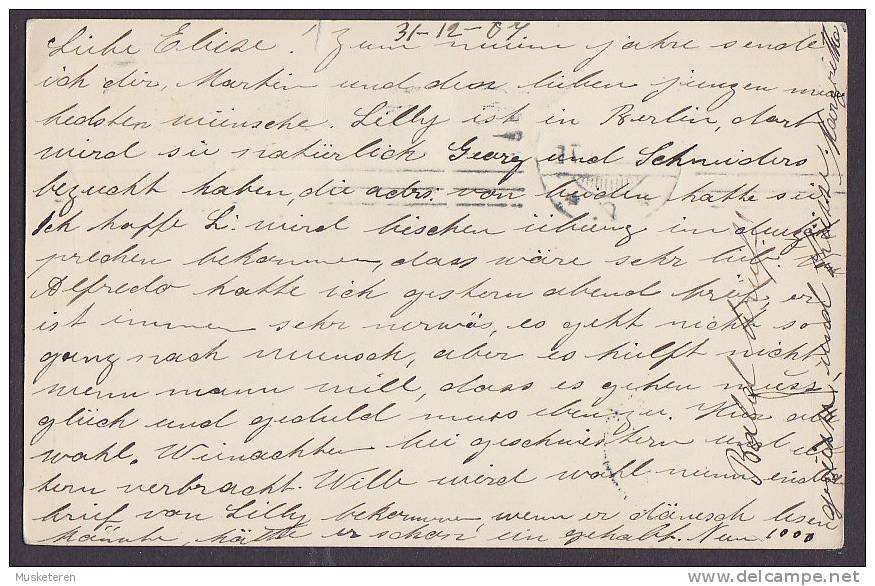 31-12-07
Liebe Eliese! Zum neuen jahre sende
ich dir, Martin und den lieben jungen meine
besten wünsche. Lilly ist in Berlin, dort
wird sie natürlich Georg und Schneiders
bezucht haben, die adrs. von beiden hatte sie
Ich hoffe L. wird bischen übung in deuzch
prechen bekommen, dass wäre sehr lieb.
Alfredo hatte ich gestern abend brief, er
ist immer sehr nerwös, es geht nicht so
ganz nach wunsch, aber es hilft nicht
wenn mann will, dass es gehen muss,
glück und geduld muss eben zu. Hier alles
wohl. Weinachten bei geschwistern und el
tern verbracht. Willy wird wohl nun endlich
brief von Lilly bekommen, wenn er dänisch lesen
könnte, hätte er schon ein gehabt. Nun 1000
grüsse und küsse
Margrethe
Bald
Musketeren
www.delcampe.net